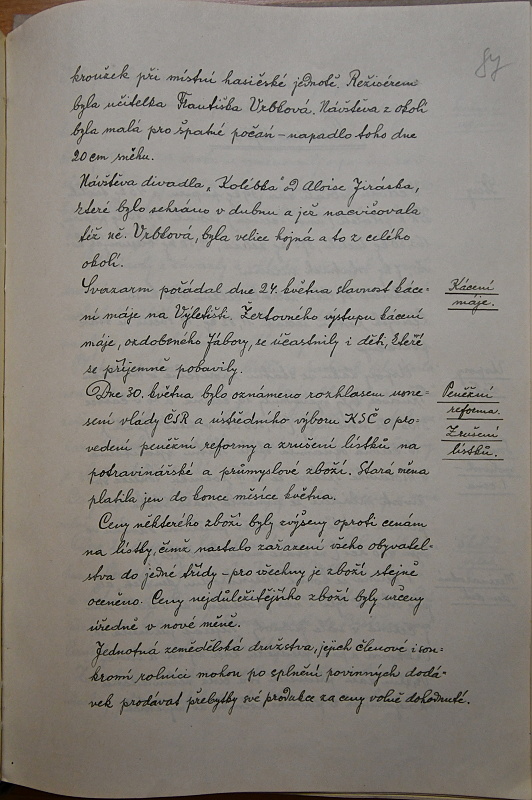 87
kroužek při místní hasičské jednotě. Režisérem
byla učitelka Františka Vrbková. Návštěva z okolí
byla malá pro špatné počasí – napadlo toho dne
20 cm sněhu.
Návštěva divadla „Kolébka" od Aloise Jiráska,
které bylo sehráno v dubnu a jež nacvičovala
též uč. Vrbková, byla velice hojná a to z celého
okolí.
Svazarm pořádal dne 24. května slavnost káce-
ní máje na Výletišti. Žertovného výstupu kácení
máje, ozdobeného fábory, se účastnily i děti, které
se příjemně pobavily.
Kácení
máje.
Dne 30. května bylo oznámeno rozhlasem usne-
sení vlády ČSR a ústředního výboru KSČ o pro-
vedení peněžní reformy a zrušení lístků na
potravinářské a průmyslové zboží. Stará měna
platila jen do konce měsíce května.
Peněžní
reforma.
Zrušení
lístků.
Ceny některého zboží byly zvýšeny oproti cenám
na lístky, čímž nastalo zařazení všeho obyvatel-
stva do jedné třídy – pro všechny je zboží stejně
oceněno. Ceny nejdůležitějšího zboží byly určeny
úředně v nové měně.
Jednotná zemědělská družstva, jejich členové i sou-
kromí rolníci mohou po splnění povinných dodá-
vek prodávat přebytky své produkce za ceny volně dohodnuté.